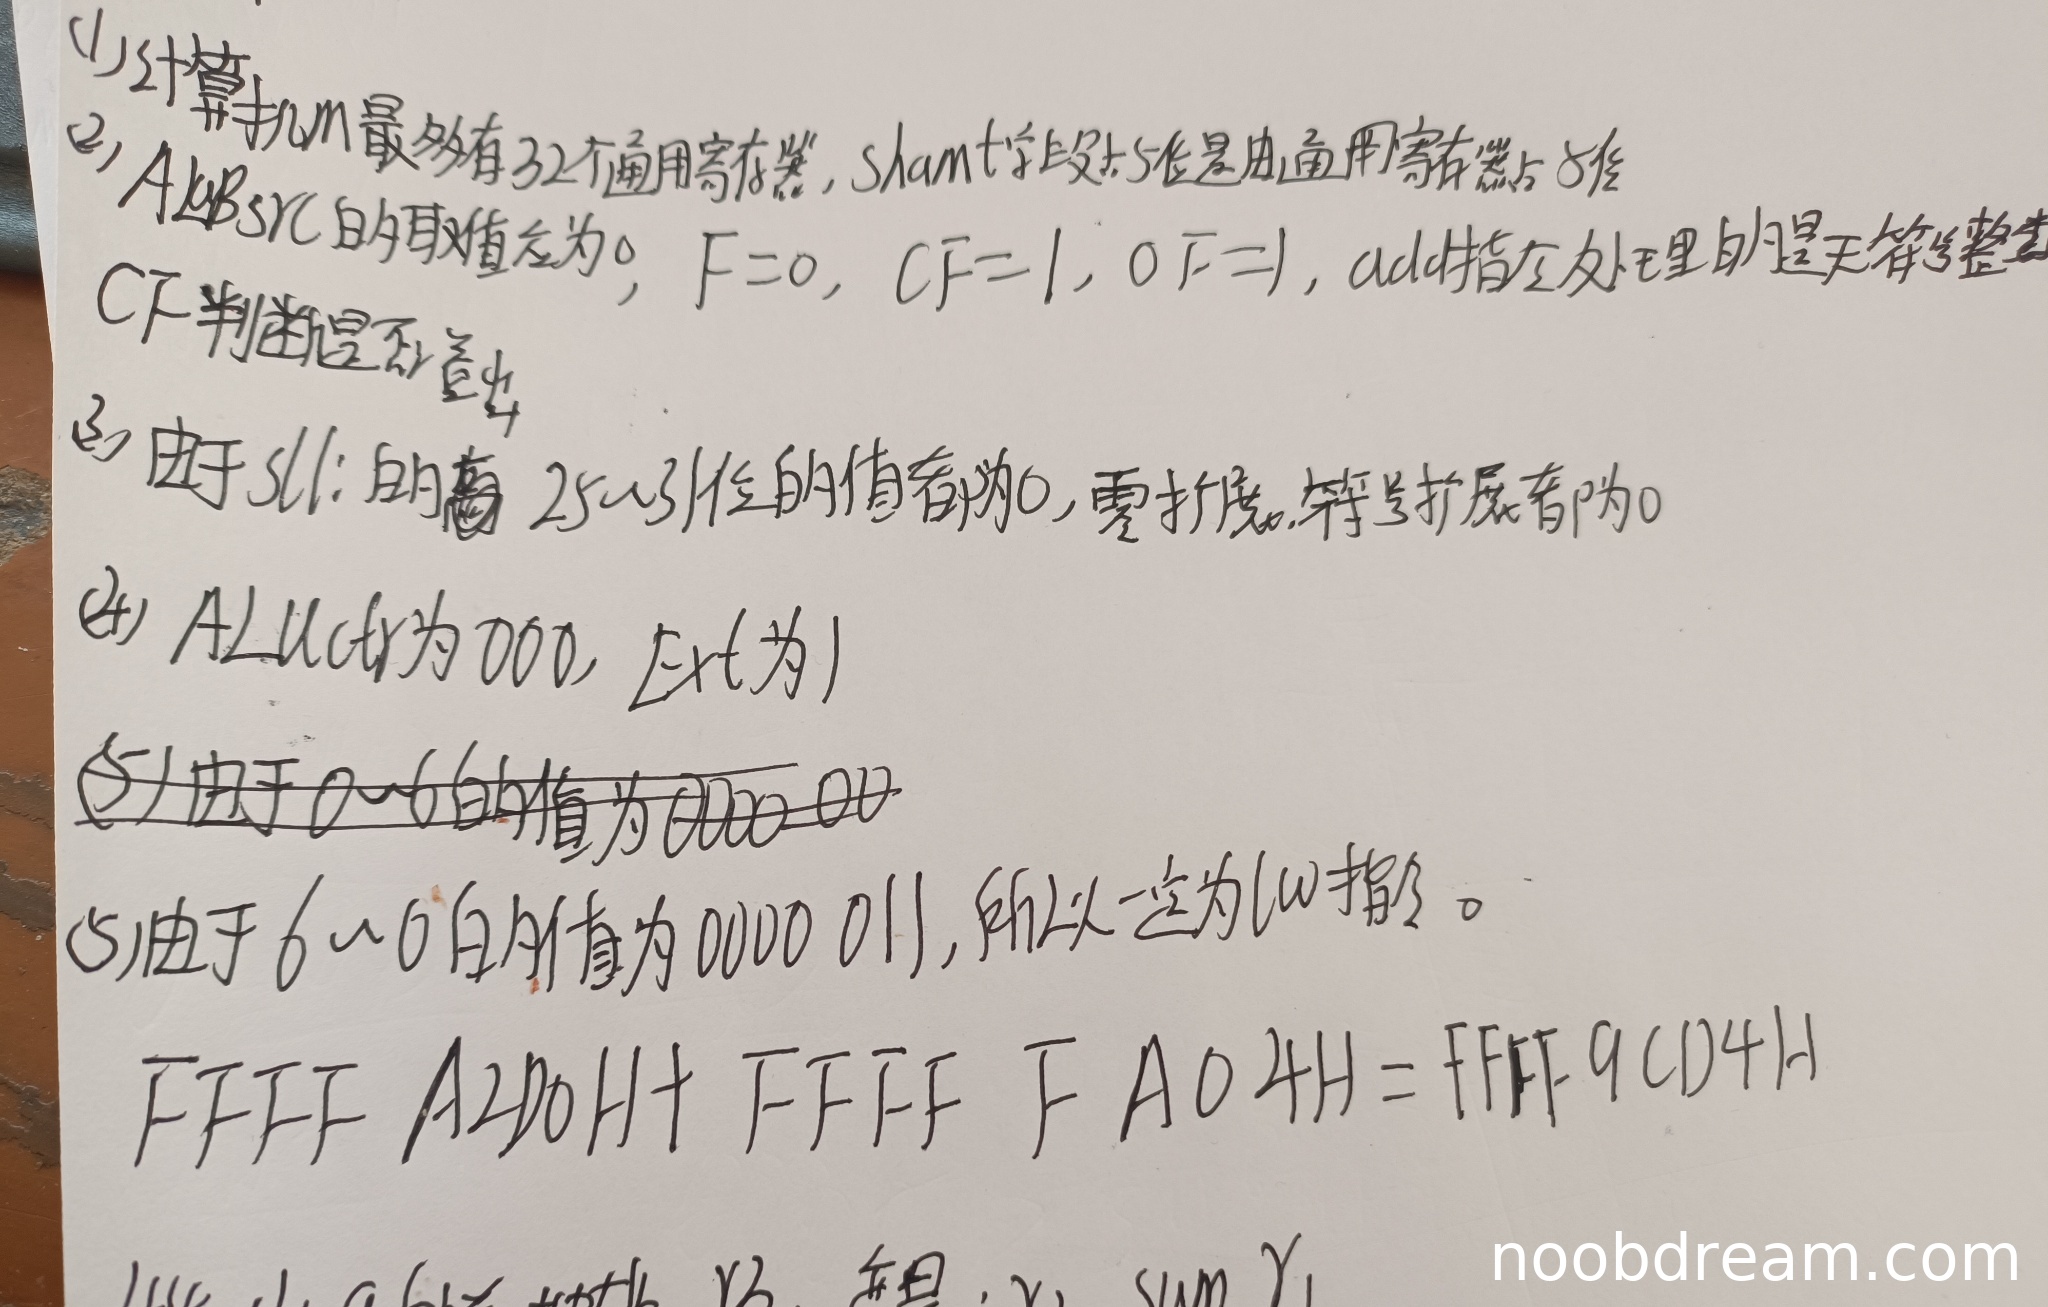 (1) 计算机M最多有32个通用寄存器, shamt字段占5位是由通用寄存器占5位
(2) ALUBsrc的取值应为0, F=0, CF=1, OF=1, add指令处理的是无符号整数
CF判断是否溢出
(3) 由于slli的 25~31位的值都为0, 零扩展、符号扩展都为0
(4) ALUctr为000, Ext为1
(5) 由于0~6的值为0000 00
(5) 由于6~0的值为0000 011, 所以一定为lw指令。
FFFF A2D0H + FFFF F A04H = FFFF 9CD4H
r1 sum
noobdream.com